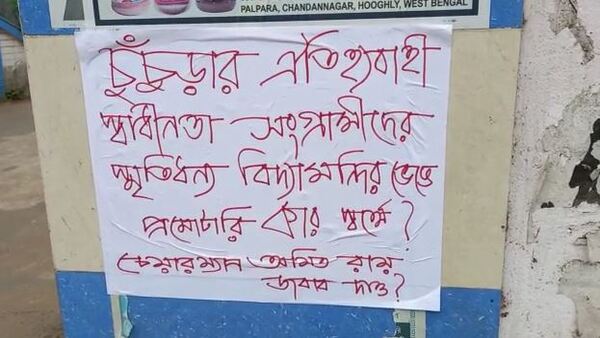 PALPARA, CHANDANNAGAR, HOOGHLY, WEST BENGAL
চুঁচুড়ার ঐতিহ্যবাহী
স্বাধীনতা সংগ্রামীদের
স্মৃতিধন্য বিদ্যামন্দির ভেঙে
প্রমোটারি কার স্বার্থে?
চেয়ারম্যান অমিত রায়
জবাব দাও?